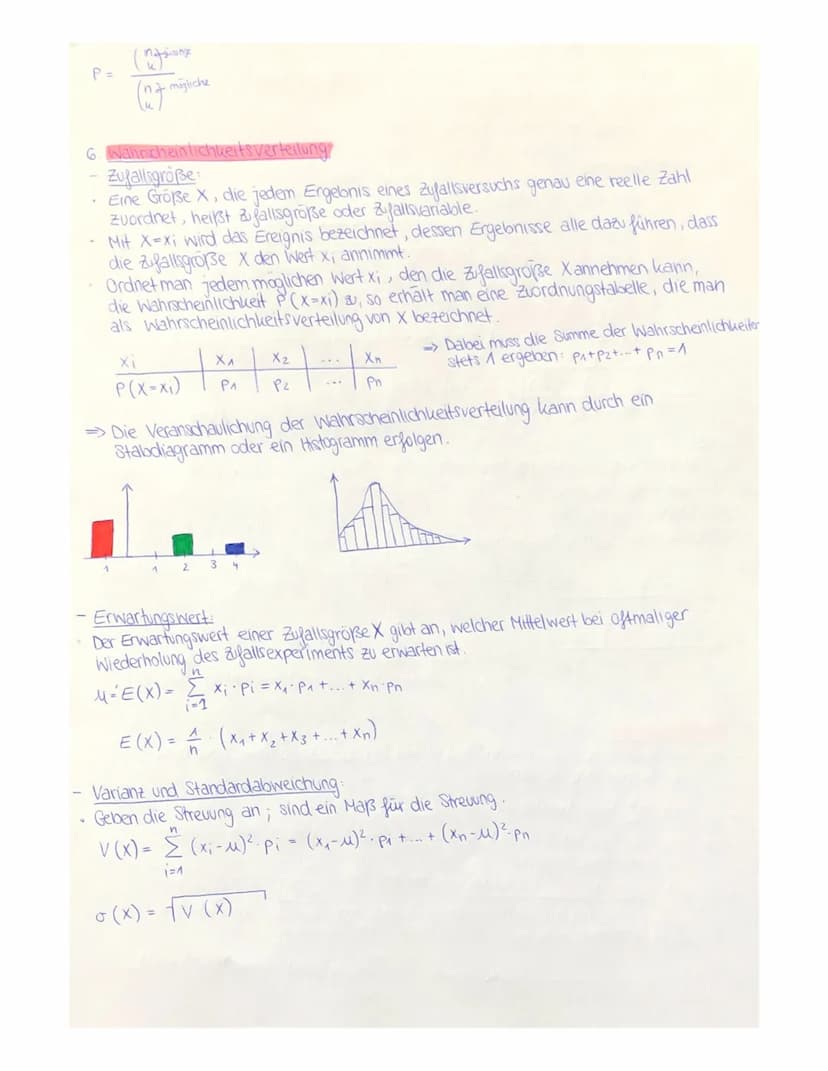 P = (n k) günstige / (n k) mögliche
6. Wahrscheinlichkeitsverteilung
- Zufallsgröße:
• Eine Größe X, die jedem Ergebnis eines Zufallsversuchs genau eine reelle Zahl
zuordnet, heißt Zufallsgröße oder Zufallsvariable.
• Mit X=xi wird das Ereignis bezeichnet, dessen Ergebnisse alle dazu führen, dass
die Zufallsgröße X den Wert xi annimmt.
• Ordnet man jedem möglichen Wert xi, den die Zufallsgröße X annehmen kann,
die Wahrscheinlichkeit P(X=xi) zu, so erhält man eine Zuordnungstabelle, die man
als Wahrscheinlichkeitsverteilung von X bezeichnet.
xi | x1 | x2 | ... | xn
P(X=xi) | p1 | p2 | ... | pn
⇒ Dabei muss die Summe der Wahrscheinlichkeiten
stets 1 ergeben: p1+p2+...+pn=1
⇒ Die Veranschaulichung der Wahrscheinlichkeitsverteilung kann durch ein
Stabdiagramm oder ein Histogramm erfolgen.
1 1 2 3 4
- Erwartungswert:
• Der Erwartungswert einer Zufallsgröße X gibt an, welcher Mittelwert bei oftmaliger
Wiederholung des Zufallsexperiments zu erwarten ist.
μ = E(X) = Σ_{i=1}^{n} xi · pi = x1 · p1 + ... + xn · pn
E(X) = 1/n · (x1 + x2 + x3 + ... + xn)
- Varianz und Standardabweichung:
• Geben die Streuung an; sind ein Maß für die Streuung.
V(X) = Σ_{i=1}^{n} (xi-μ)² · pi = (x1-μ)² · p1 + ... + (xn-μ)² · pn
σ(X) = √V(X)